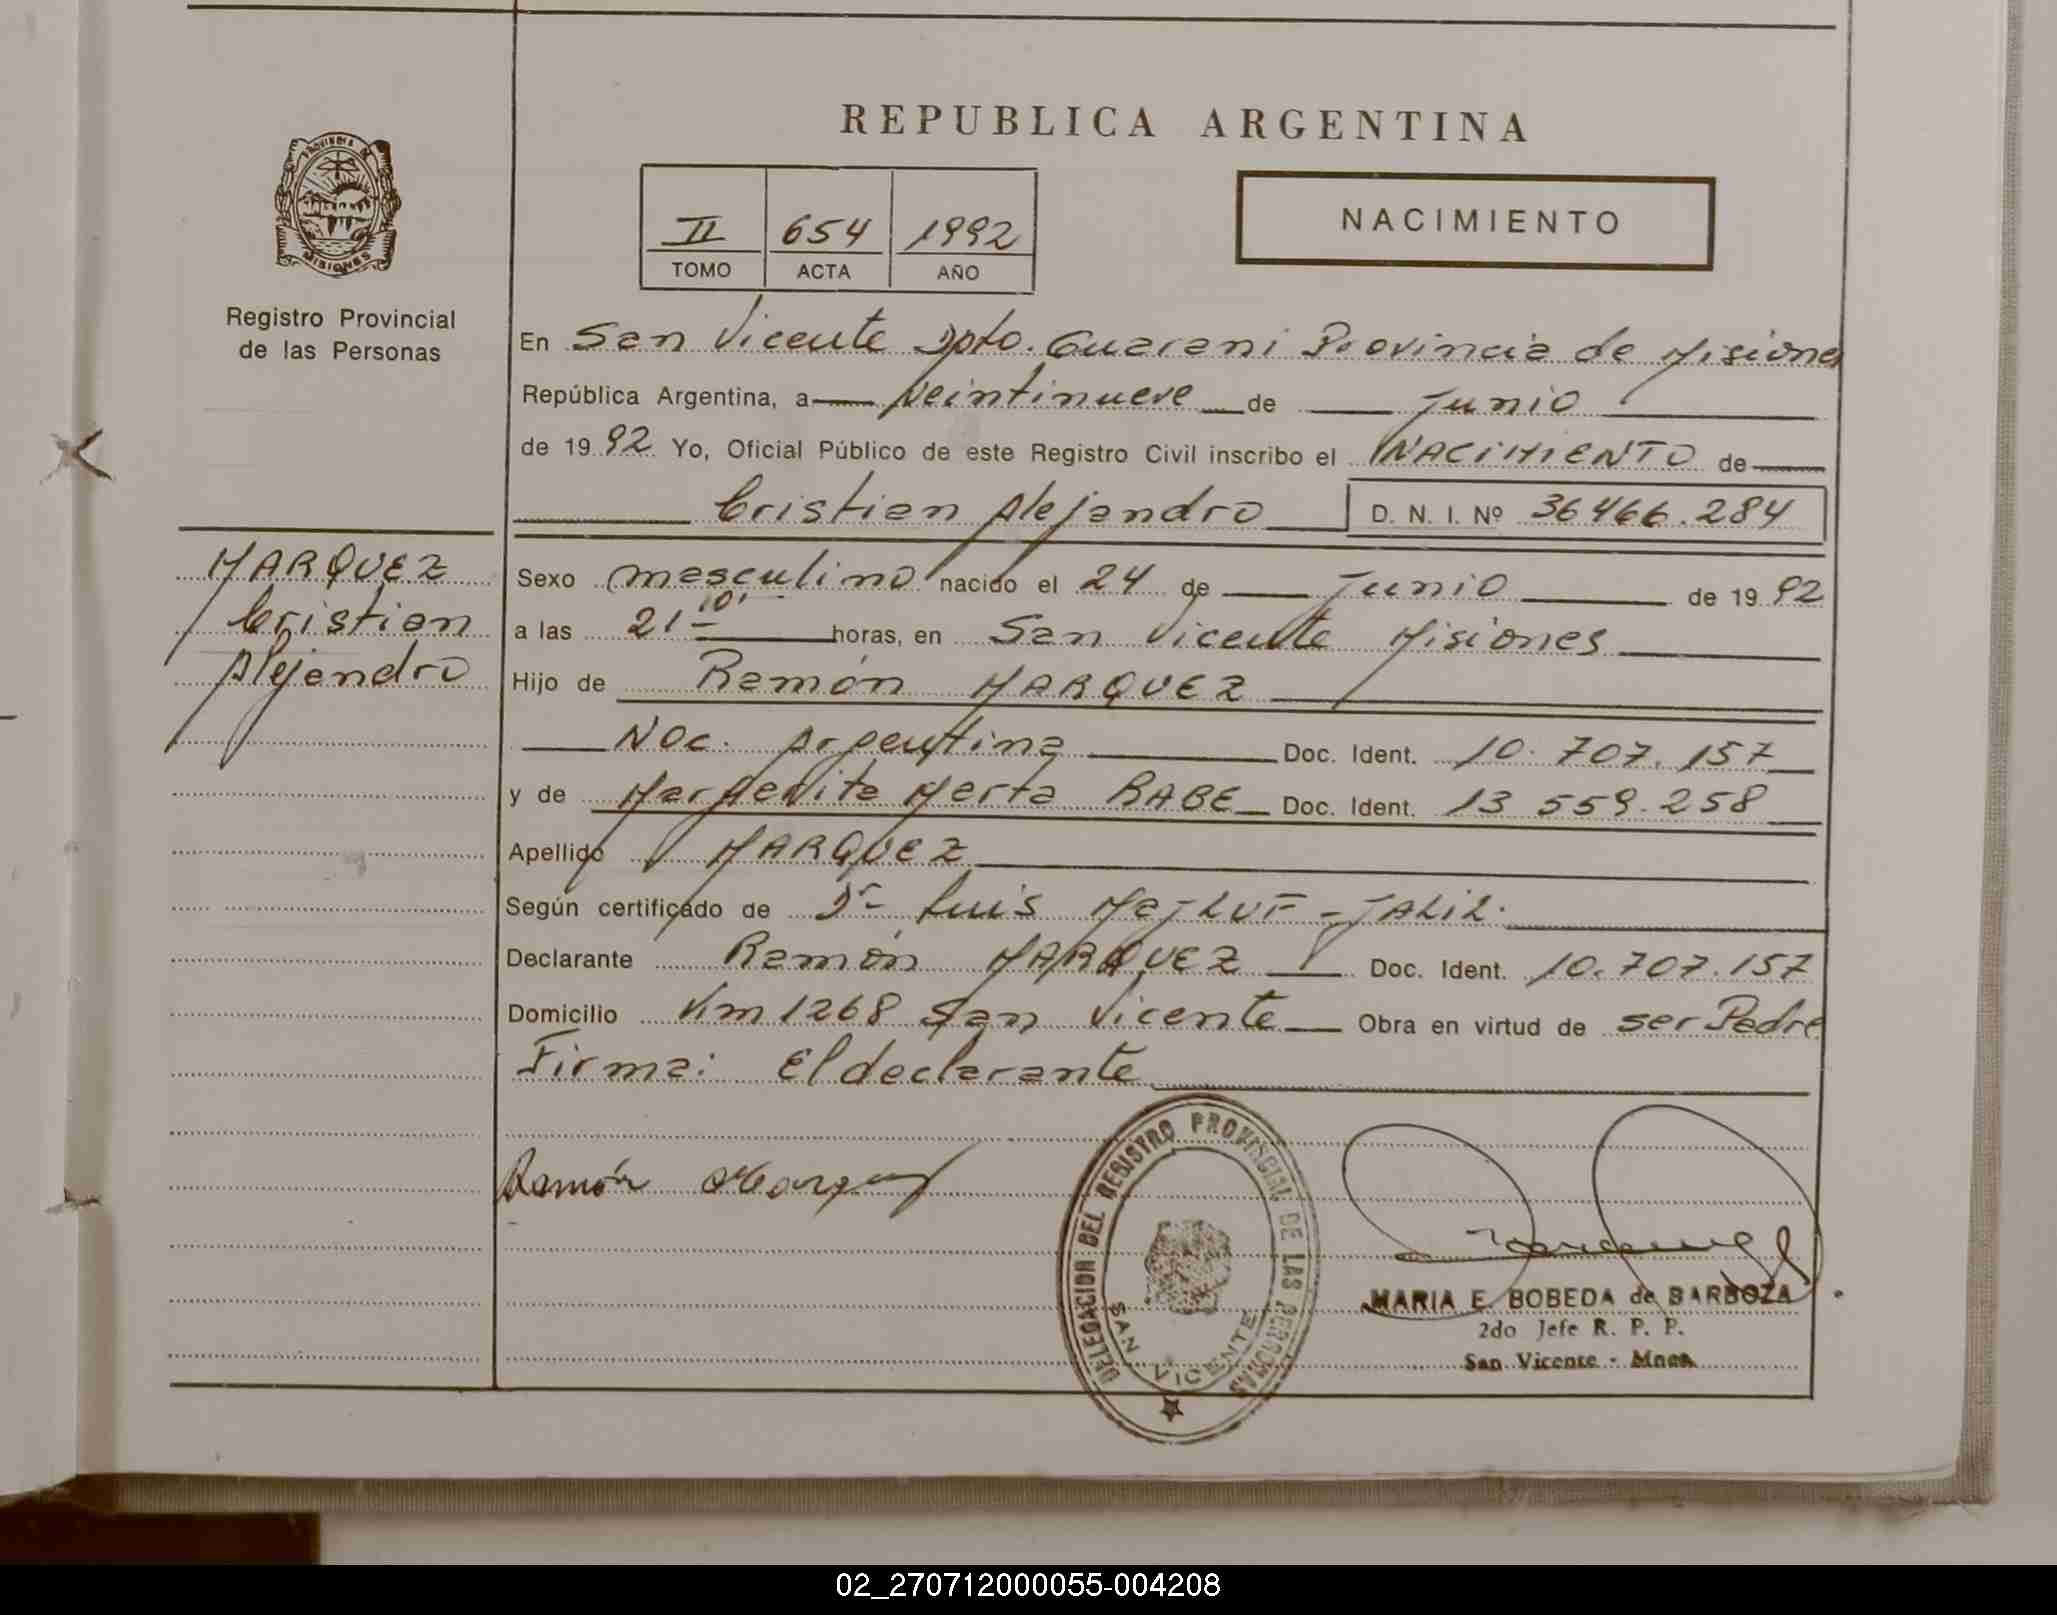 REPUBLICA ARGENTINA
PROVINCIA DE
MISIONES
Registro Provincial
de las Personas
II 654 1992
TOMO ACTA AÑO
NACIMIENTO
En San Vicente Dpto. Guarani Provincia de Misiones
República Argentina, a veintinueve de Junio
de 1992 Yo, Oficial Público de este Registro Civil inscribo el NACIMIENTO de
Cristian Alejandro D. N. I. Nº 36466.284
MARQUEZ
Cristian
Alejandro
Sexo masculino nacido el 24 de Junio de 1992
a las 21 10' horas, en San Vicente Misiones
Hijo de Ramón MARQUEZ
Nac. Argentina Doc. Ident. 10.707.157
y de Margarita Marta RABE Doc. Ident. 13 559.258
Apellido MARQUEZ
Según certificado de Dr Luis MajLUF - JALIL.
Declarante Ramón MARQUEZ Doc. Ident. 10.707.157
Domicilio Km 1268 San Vicente Obra en virtud de ser Padre
Firma: El declarante
Ramón Marquez
DELEGACION DEL REGISTRO PROVINCIAL DE LAS PERSONAS
SAN VICENTE
MARIA E. BOBEDA de BARBOZA
2do Jefe R. P. P.
San Vicente - Mnes.
02_270712000055-004208